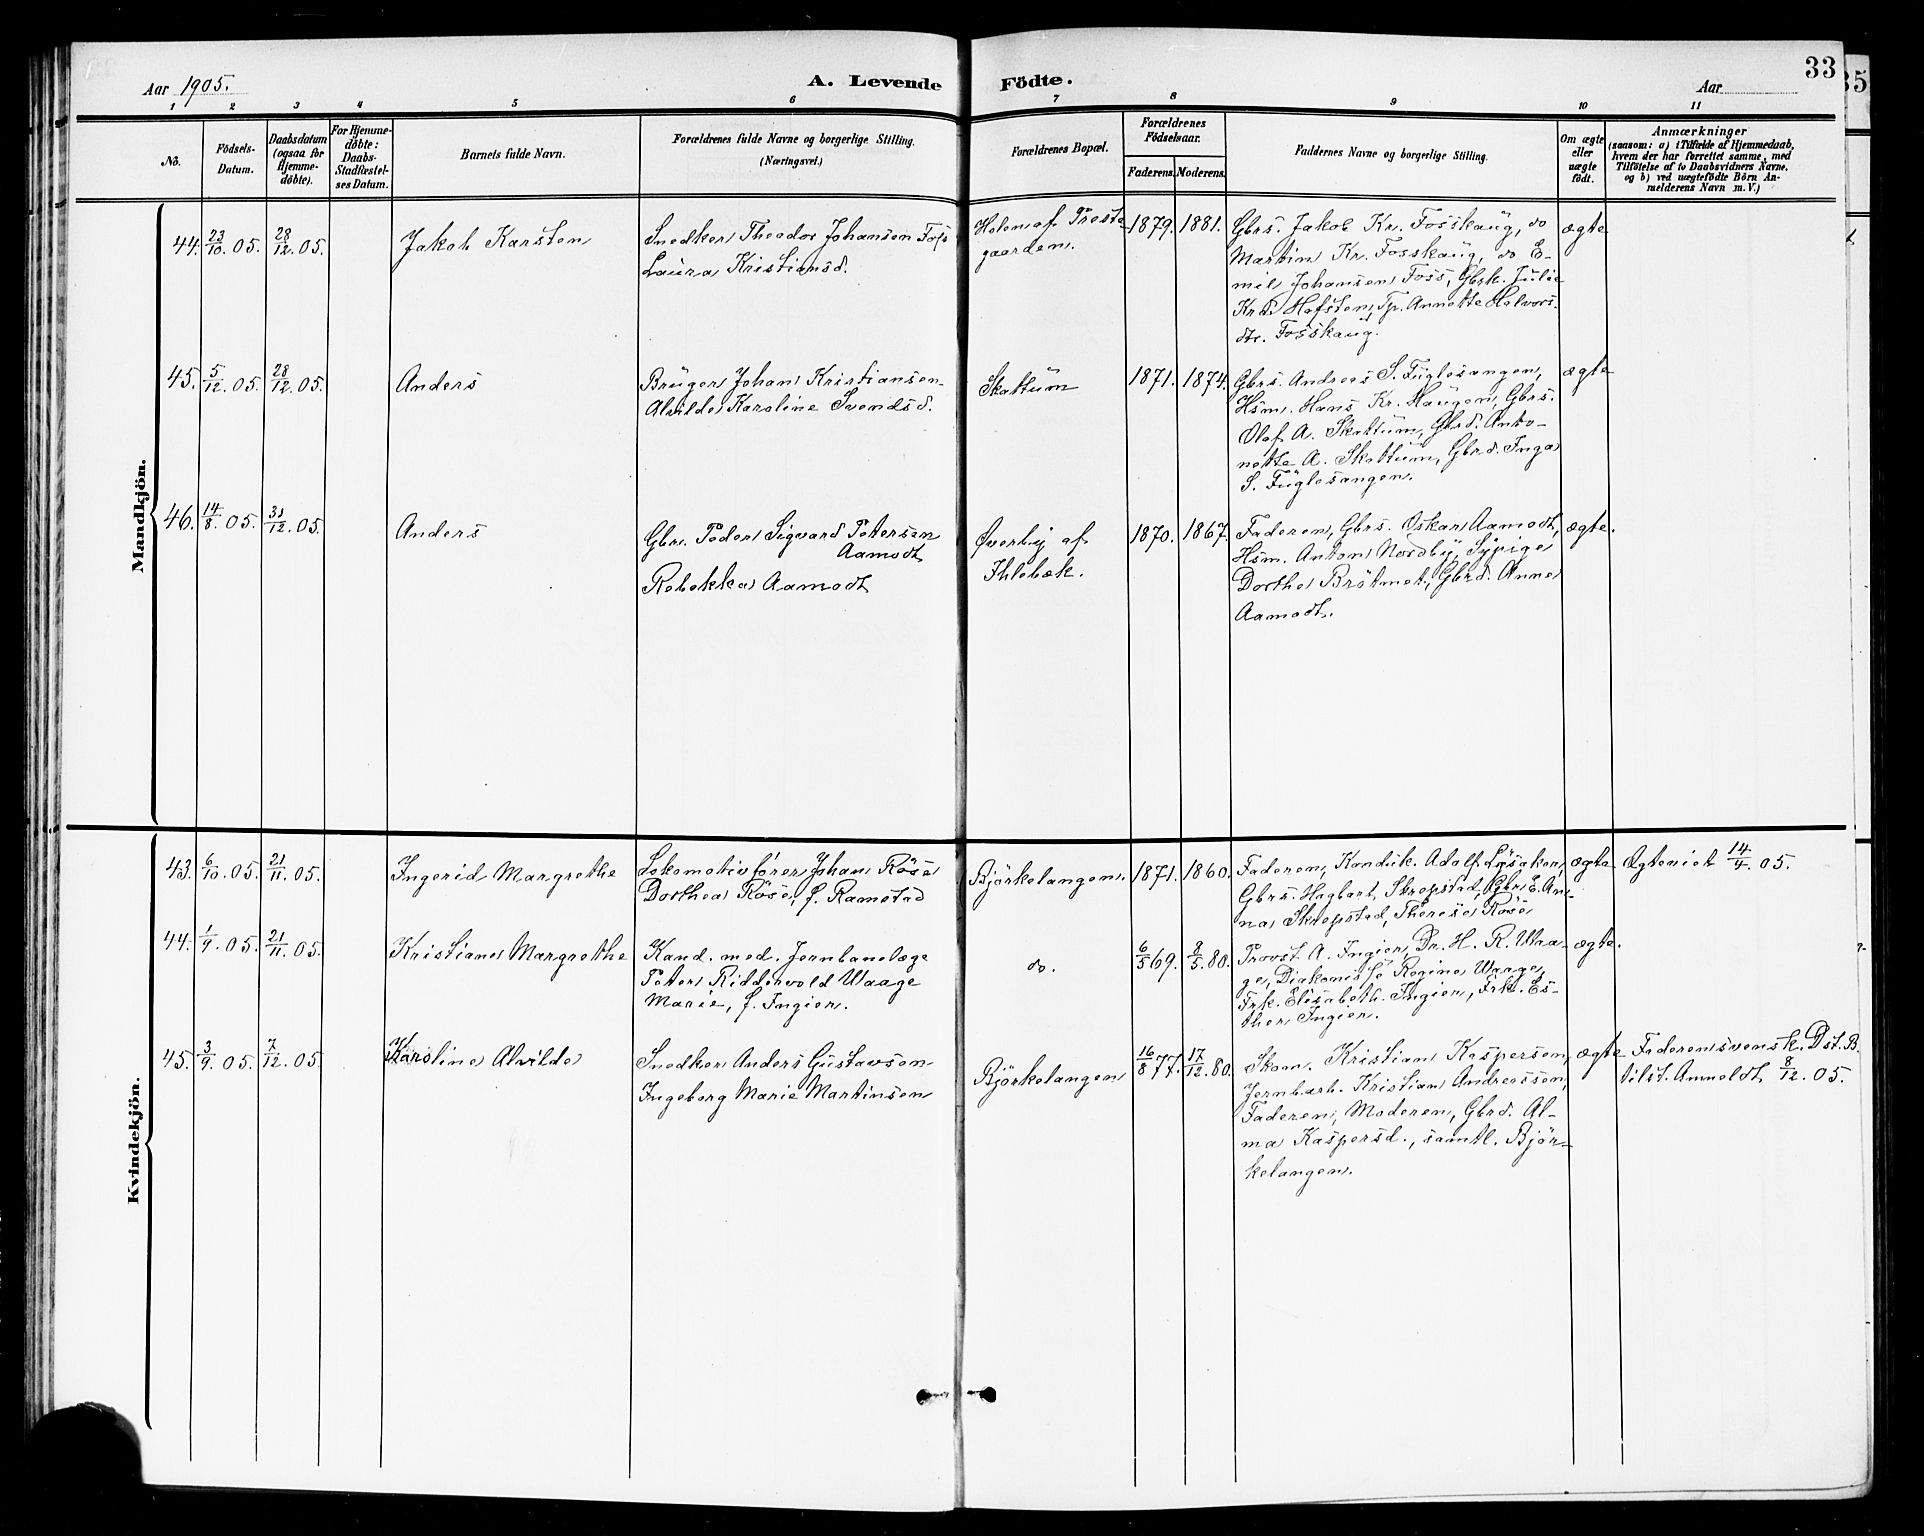 Aar 1905.
A. Levende
Födte.
Aar
33
35
1 2 3 4 5 6 7 8 9 10 11
No.
Födsels-
Datum.
Daabsdatum
(ogsaa for
Hjemme-
döbte).
For Hjemme-
döbte:
Daabs-
Stadfæstel-
ses Datum.
Barnets fulde Navn.
Forældrenes fulde Navne og borgerlige Stilling.
(Næringsvei.)
Forældrenes Bopæl.
Forældrenes
Födselsaar.
Faderens. Moderens.
Faddernes Navne og borgerlige Stilling.
Om ægte
eller
uægte
födt.
Anmærkninger
(saasom: a) i Tilfælde af Hjemmedaab,
hvem der har forrettet samme, med
Tilföielse af to Daabsvidners Navne,
og b) ved uægtefödte Börn An-
melderens Navn m. V.)
Mandkjön.
44. 23/10 05. 28/12 05.
Jakob Karsten
Snedker Theodor Johansen Foss
Laura Kristiansd.
Holen af Preste
gaarden.
1879. 1881.
Gbrs. Jakob Kr. Fosskaug, do
Martin Kr. Fosskaug, do E-
mil Johansen Foss, Gbrk. Julie
Kr.d. Hofsten, Tp. Annette Halvors-
dtr. Fosskaug.
ægte
45. 5/12 05. 28/12 05.
Anders
Bruger Johan Kristiansen
Alvilde Karoline Svendsd.
Skattum
1871. 1874.
Gbrs. Andreas S. Fuglesangen,
Hsm. Hans Kr. Haugen, Gbrs.
Olaf A. Skattum, Gbrd. Anto-
nette A. Skattum, Gbrd. Inga
S. Fuglesangen.
ægte
46. 14/8 05. 31/12 05.
Anders
Gbr. Peder Sigvard Petersen
Aamodt
Rebekka Aamodt
Överby af
Ihlebæk.
1870. 1867.
Faderen, Gbrs. Oskar Aamodt,
Hsm. Anton Nordby, Sypige
Dorthe Brötmet, Gbrd. Anne
Aamodt.
ægte.
Kvindekjön.
43. 6/10 05. 21/11 05.
Ingerid Margrethe
Lokomotivförer Johan Röse
Dorthea Röse, f. Ramstad
Björkelangen.
1871. 1860.
Faderen, Konduk. Adolf Lysaker,
Gbrs. Hagbart Skrepstad, Gbr.E. An-
na Skrepstad, Therese Röse
ægte
Ogteviet 14/4 05.
44. 1/9 05. 21/11 05.
Kristiane Margrethe
Kand. med. Jernbanelæge
Peter Riddervold Waage
Marie, f. Ingier.
do.
6/5 69. 8/5 80.
Provst A. Ingier, Dr. H. R. Waa-
ge, Diakonisse Regine Waage,
Frk. Elisabeth Ingier, Frk. Es-
ther Ingier.
ægte.
45. 3/9 05. 7/12 05.
Karoline Alvilde
Snedker Anders Gustavsen
Ingeborg Marie Martinsen
Björkelangen
16/8 77. 17/12 80.
Skom. Kristian Kaspersen,
Jernbarb. Kristian Andreassen,
Faderen, Moderen, Gbrd. Al-
ma Kaspersd., samtl. Björ-
kelangen.
ægte
Faderen svensk. Dst. B.
tilst. Anmeldt 8/12 05.